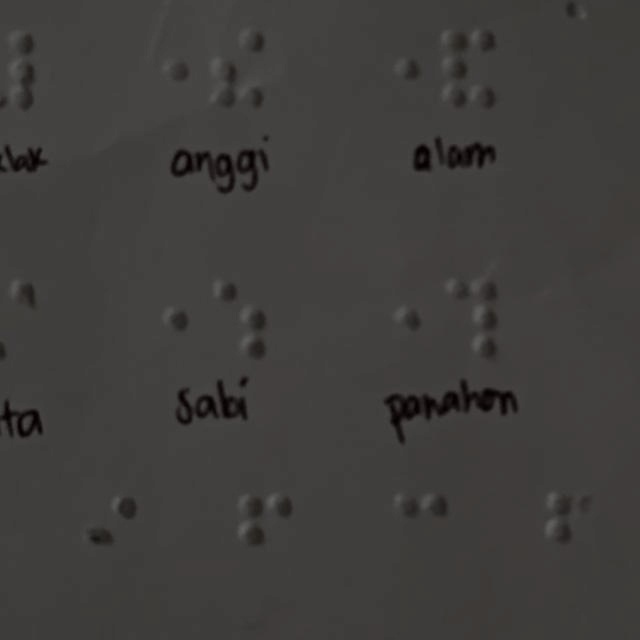 ⠐⠮ ⠐⠯
anggi alam
⠐⠱ ⠐⠹
sabi panahon
⠊ ⠋ ⠉ ⠋